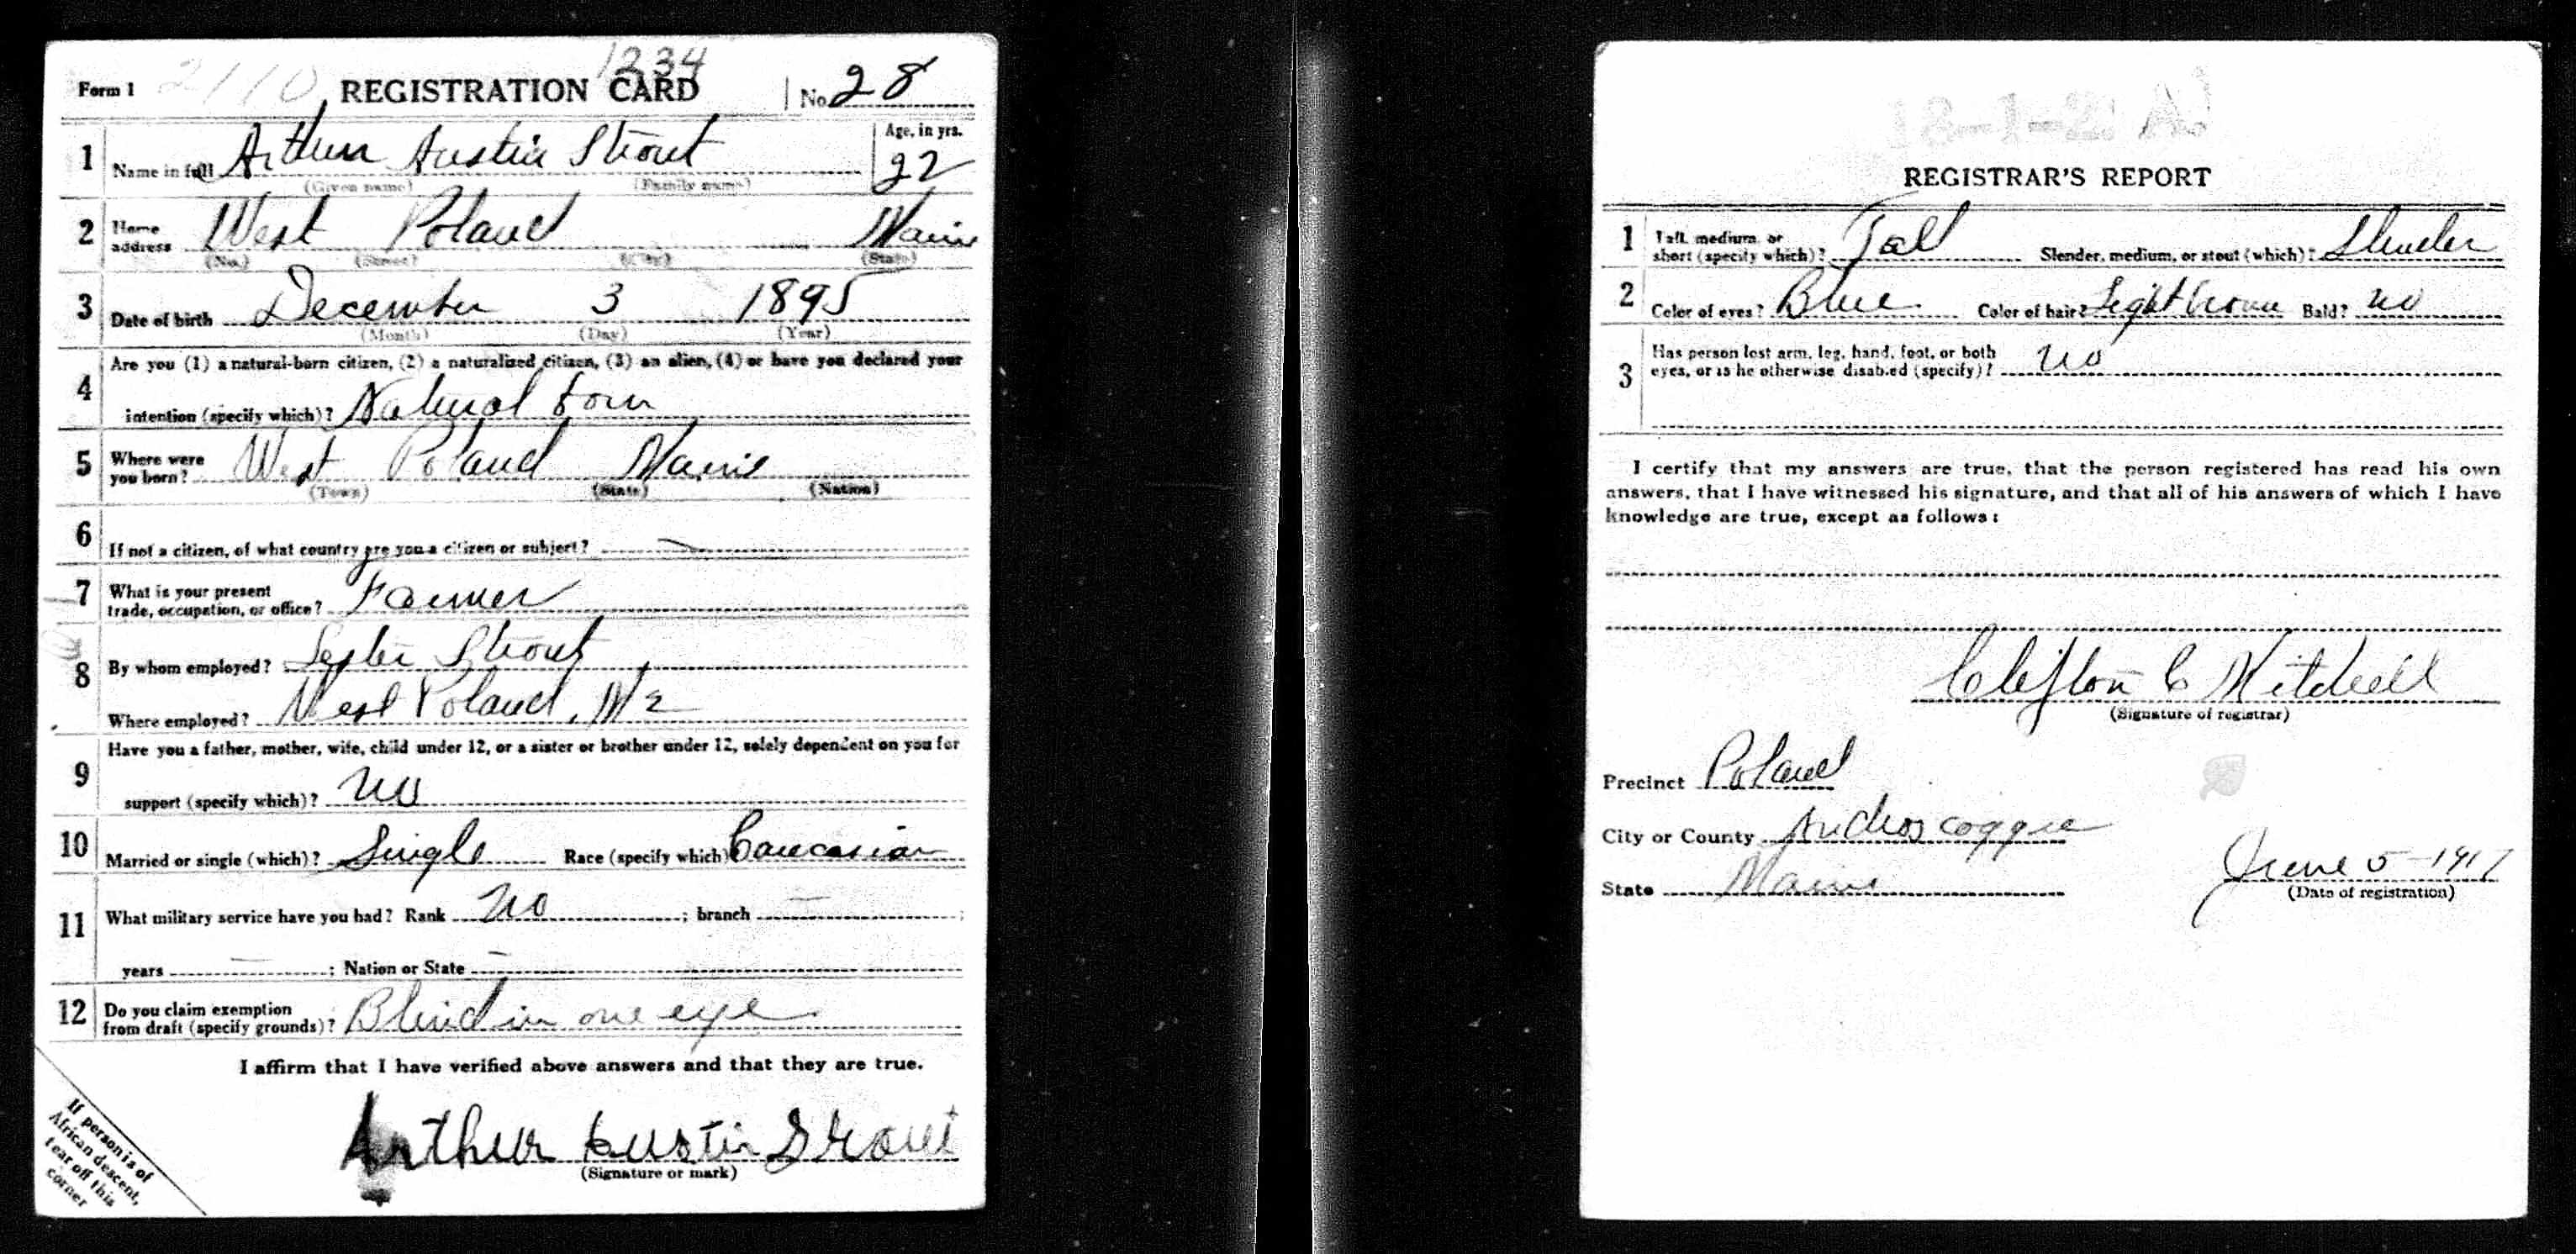 1234
Form 1 2110 REGISTRATION CARD No. 28
1 Name in full Arthur Austin Strout Age, in yrs. 22
(Given name) (Family name)
2 Home address West Poland Maine
(No.) (Street) (City) (State)
3 Date of birth December 3 1895
(Month) (Day) (Year)
4 Are you (1) a natural-born citizen, (2) a naturalized citizen, (3) an alien, (4) or have you declared your
intention (specify which)? Natural born
5 Where were you born? West Poland Maine
(Town) (State) (Nation)
6 If not a citizen, of what country are you a citizen or subject? —
7 What is your present trade, occupation, or office? Farmer
8 By whom employed? Lester Strout
Where employed? West Poland, Me
9 Have you a father, mother, wife, child under 12, or a sister or brother under 12, solely dependent on you for
support (specify which)? no
10 Married or single (which)? Single Race (specify which)? Caucasian
11 What military service have you had? Rank no ; branch — ;
years — ; Nation or State —
12 Do you claim exemption from draft (specify grounds)? Blind in one eye
I affirm that I have verified above answers and that they are true.
Arthur Austin Strout
(Signature or mark)
If person is of
African descent,
tear off this
corner
REGISTRAR'S REPORT
1 Tall, medium, or short (specify which)? Tall Slender, medium, or stout (which)? Slender
2 Color of eyes? Blue Color of hair? Light brown Bald? no
3 Has person lost arm, leg, hand, foot, or both eyes, or is he otherwise disabled (specify)? no
I certify that my answers are true, that the person registered has read his own
answers, that I have witnessed his signature, and that all of his answers of which I have
knowledge are true, except as follows:
Clifton C Mitchell
(Signature of registrar)
Precinct Poland
City or County Androscoggin
State Maine
June 5-1917
(Date of registration)